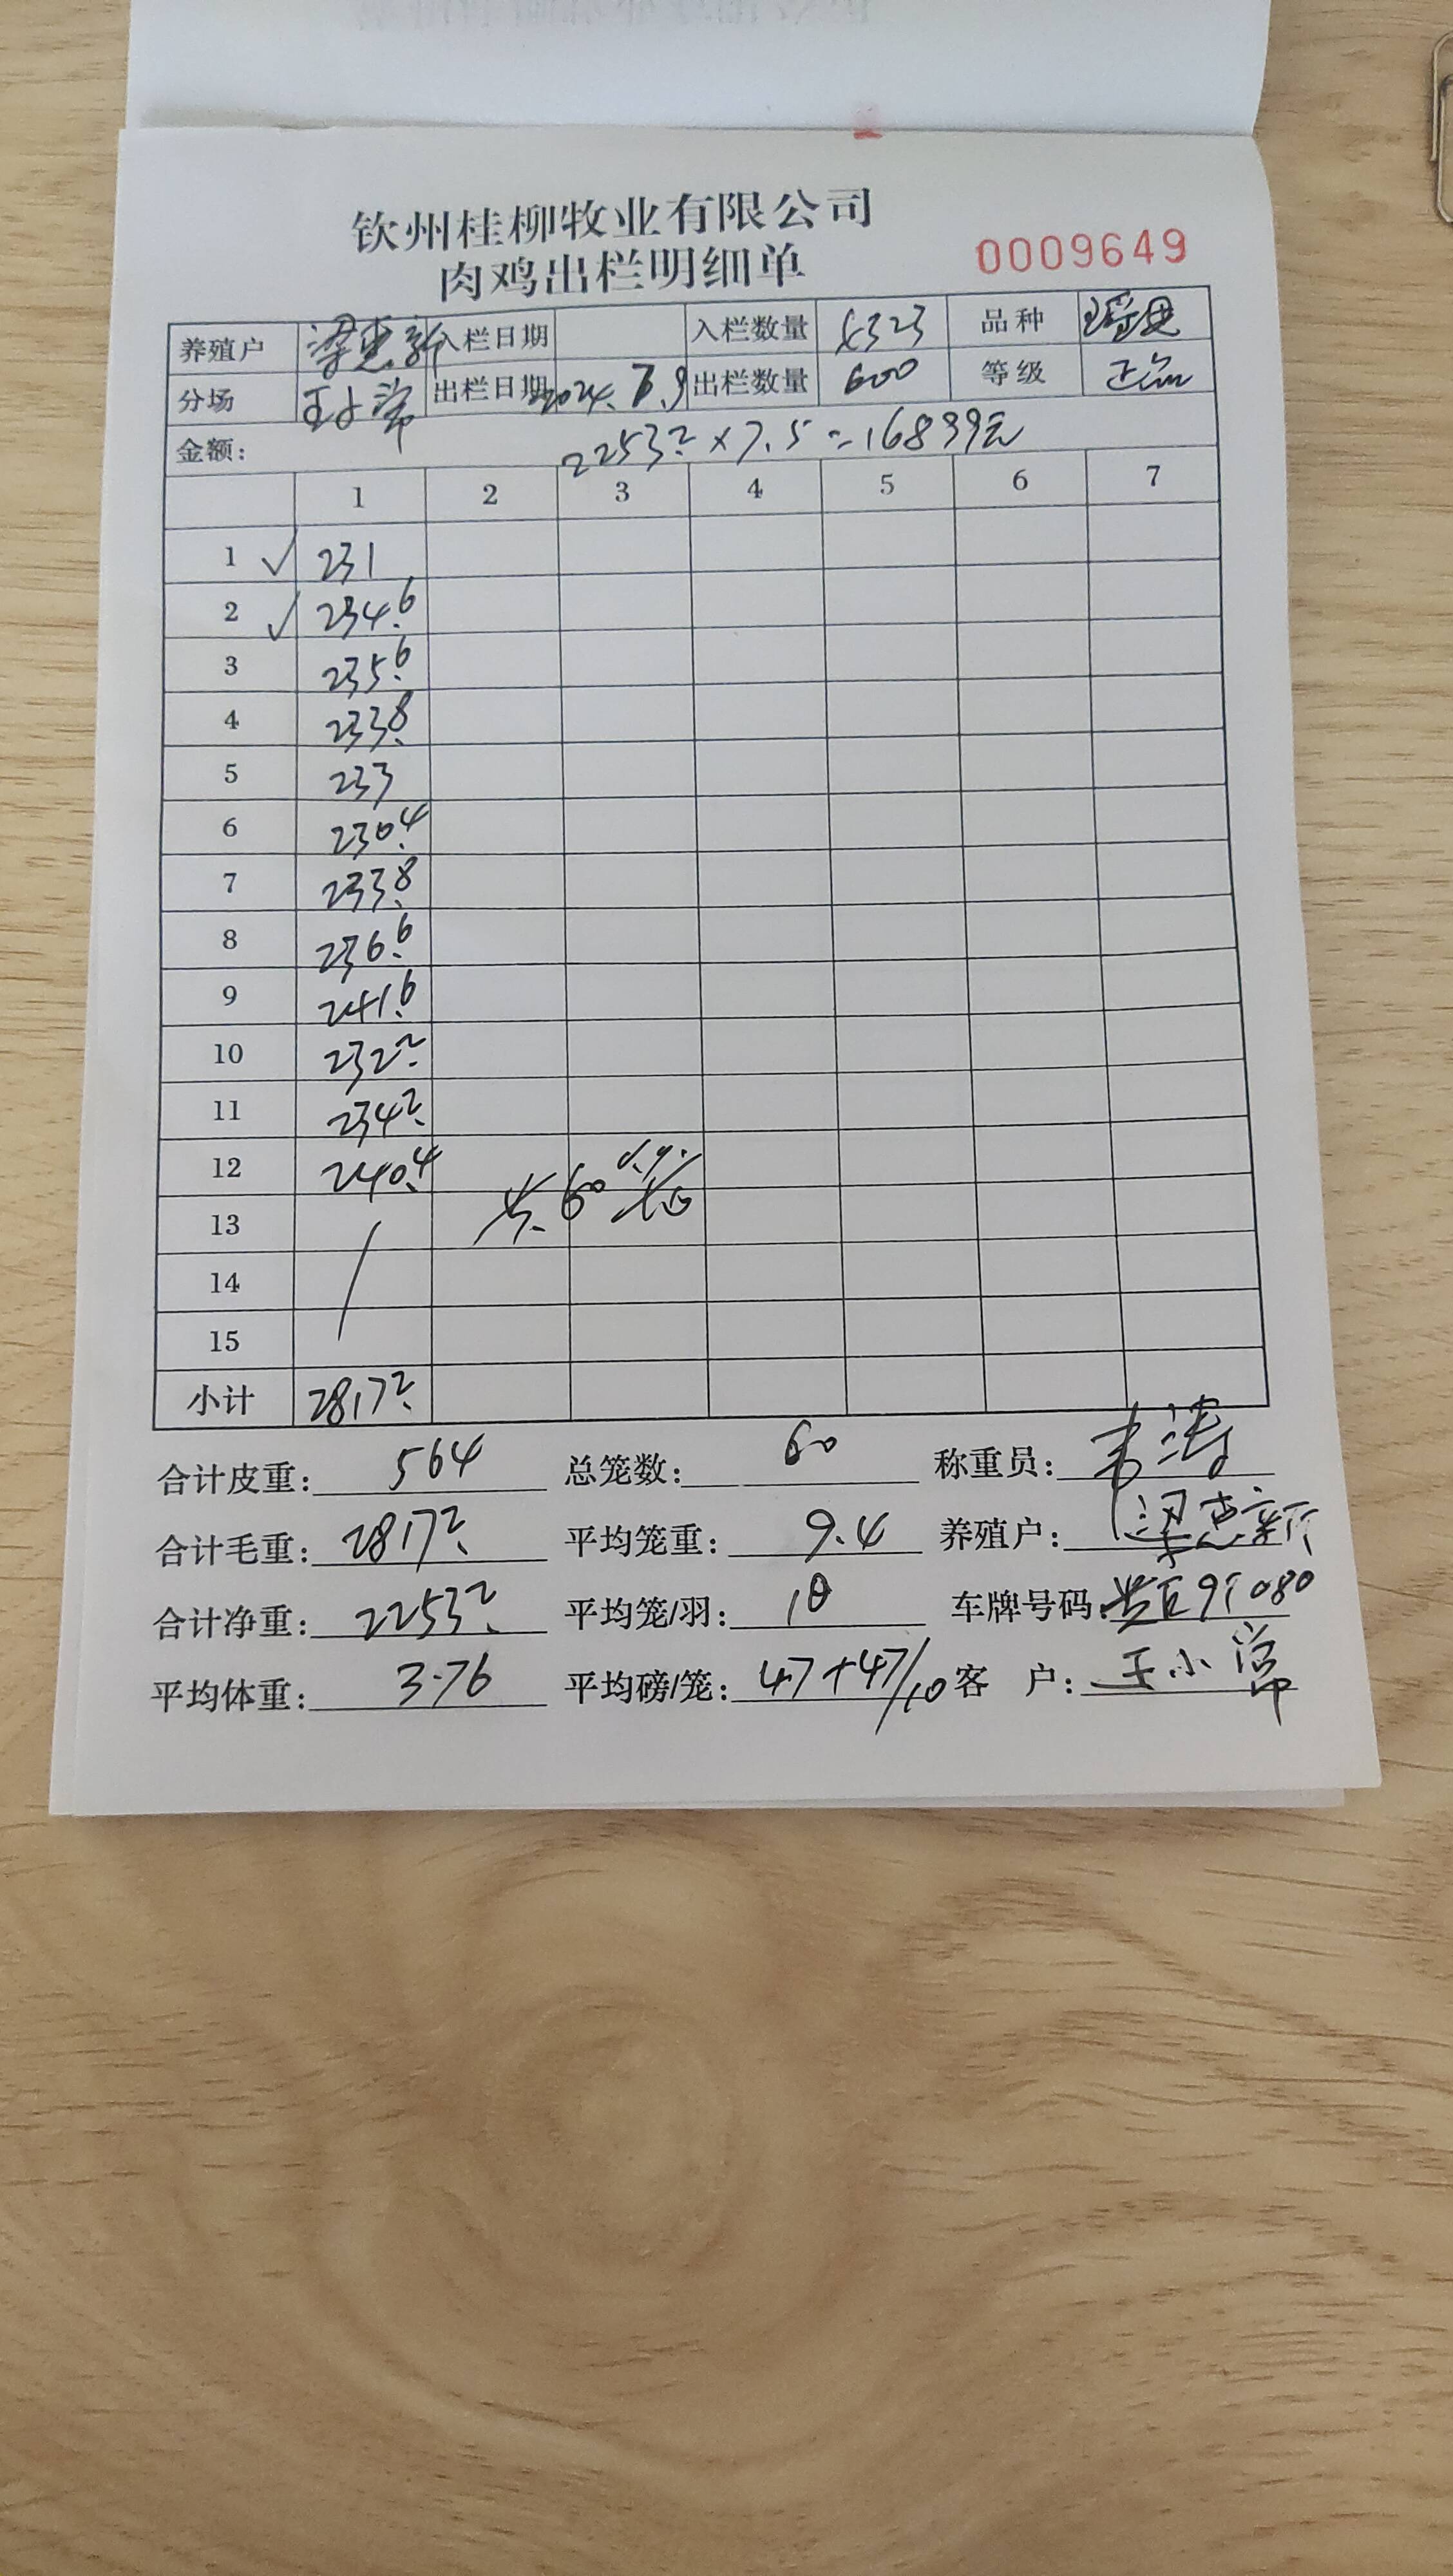 钦州桂柳牧业有限公司
肉鸡出栏明细单
0009649
养殖户 梁忠新 入栏日期 入栏数量 4323 品种 瑶鸡
分场 王小常 出栏日期 2024.7.9 出栏数量 600 等级 正品
金额: 2253.2×7.5=16899元
1 2 3 4 5 6 7
1 ✓ 231
2 ✓ 234.6
3 235.6
4 233.8
5 233
6 230.4
7 233.8
8 236.6
9 241.6
10 232.2
11 234.2
12 240.4
共60笼
13
14
15
小计 2817.2
合计皮重: 564 总笼数: 60 称重员: 韦涛
合计毛重: 2817.2 平均笼重: 9.4 养殖户: 梁忠新
合计净重: 2253.2 平均笼/羽: 10 车牌号码: 91080
平均体重: 3.76 平均磅/笼: 47+47/10 客 户: 王小常